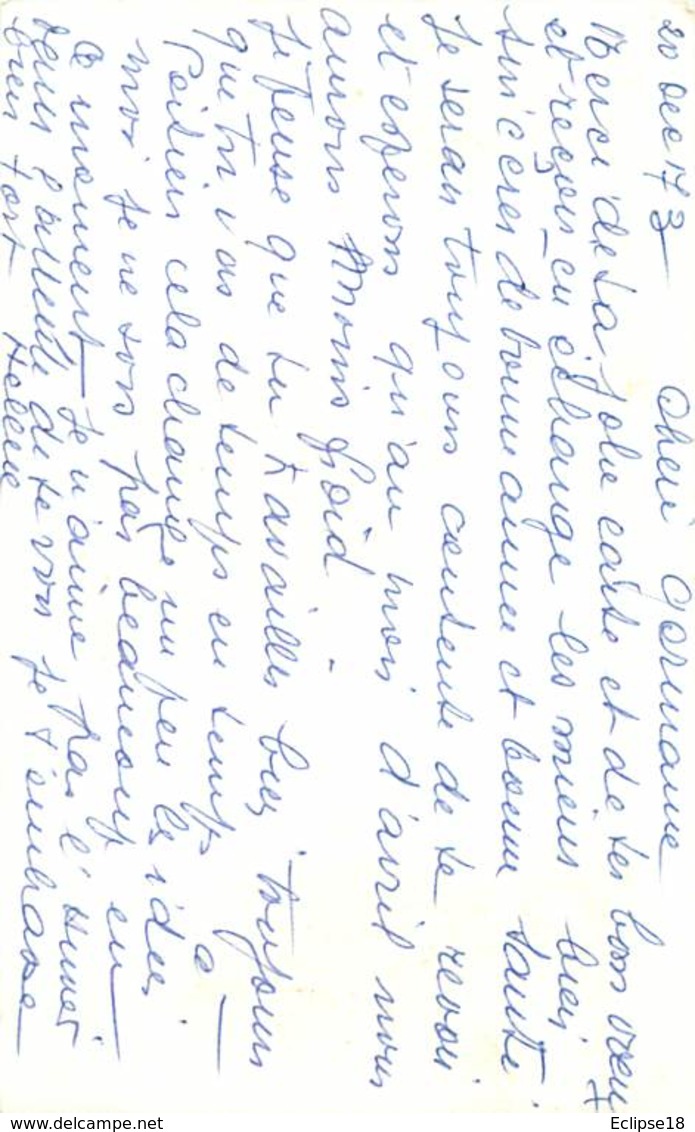 20 Dec 173
Cherie Germaine
Merci de ta jolie carte et de tes bons vœux
et reçois en échange les miens bien
sincères de bonne année et bonne santé.
Je serais toujours contente de te revoir
et esperons qu'au mois d'avril nous
aurons moins froid
Je pense que tu travailles bien toujours
que tu vas de temps en temps a
Poitiers cela change un peu les idées
moi je ne sors pas beaucoup en
ce moment je n'aime pas l'hiver
dans l'attente de te voir je t'embrasse
bien fort Hélène
Eclipse18
www.delcampe.net